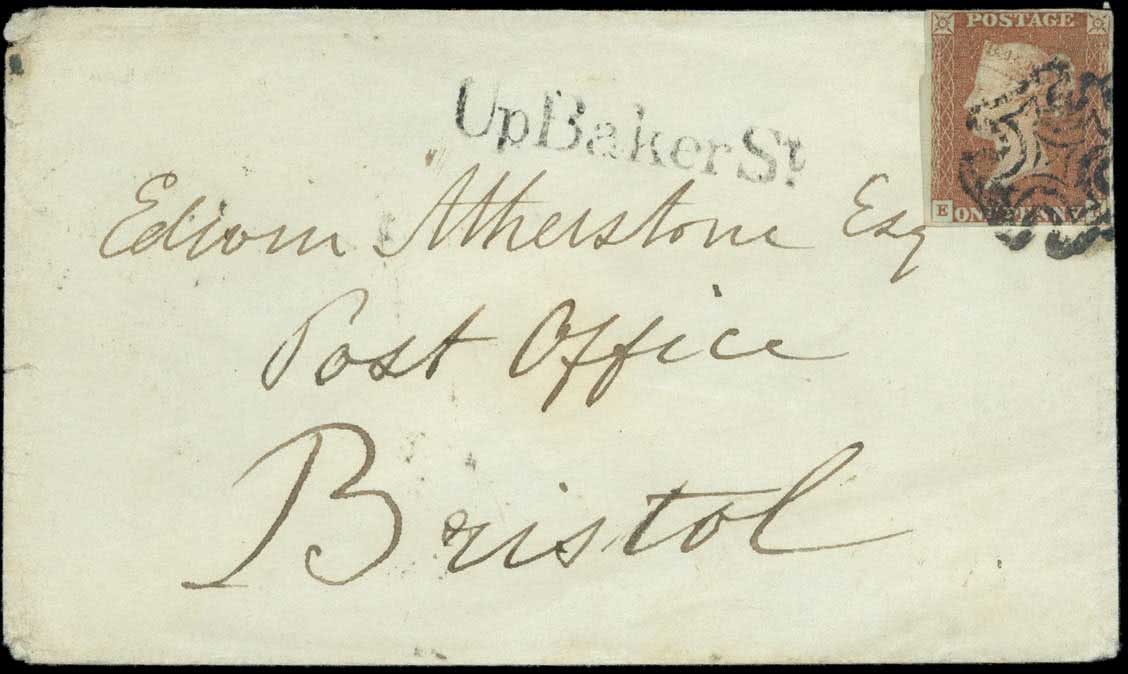 POSTAGE
Up Baker St
Edwin Atherstone Esq
Post Office
Bristol
E ONE PENNY